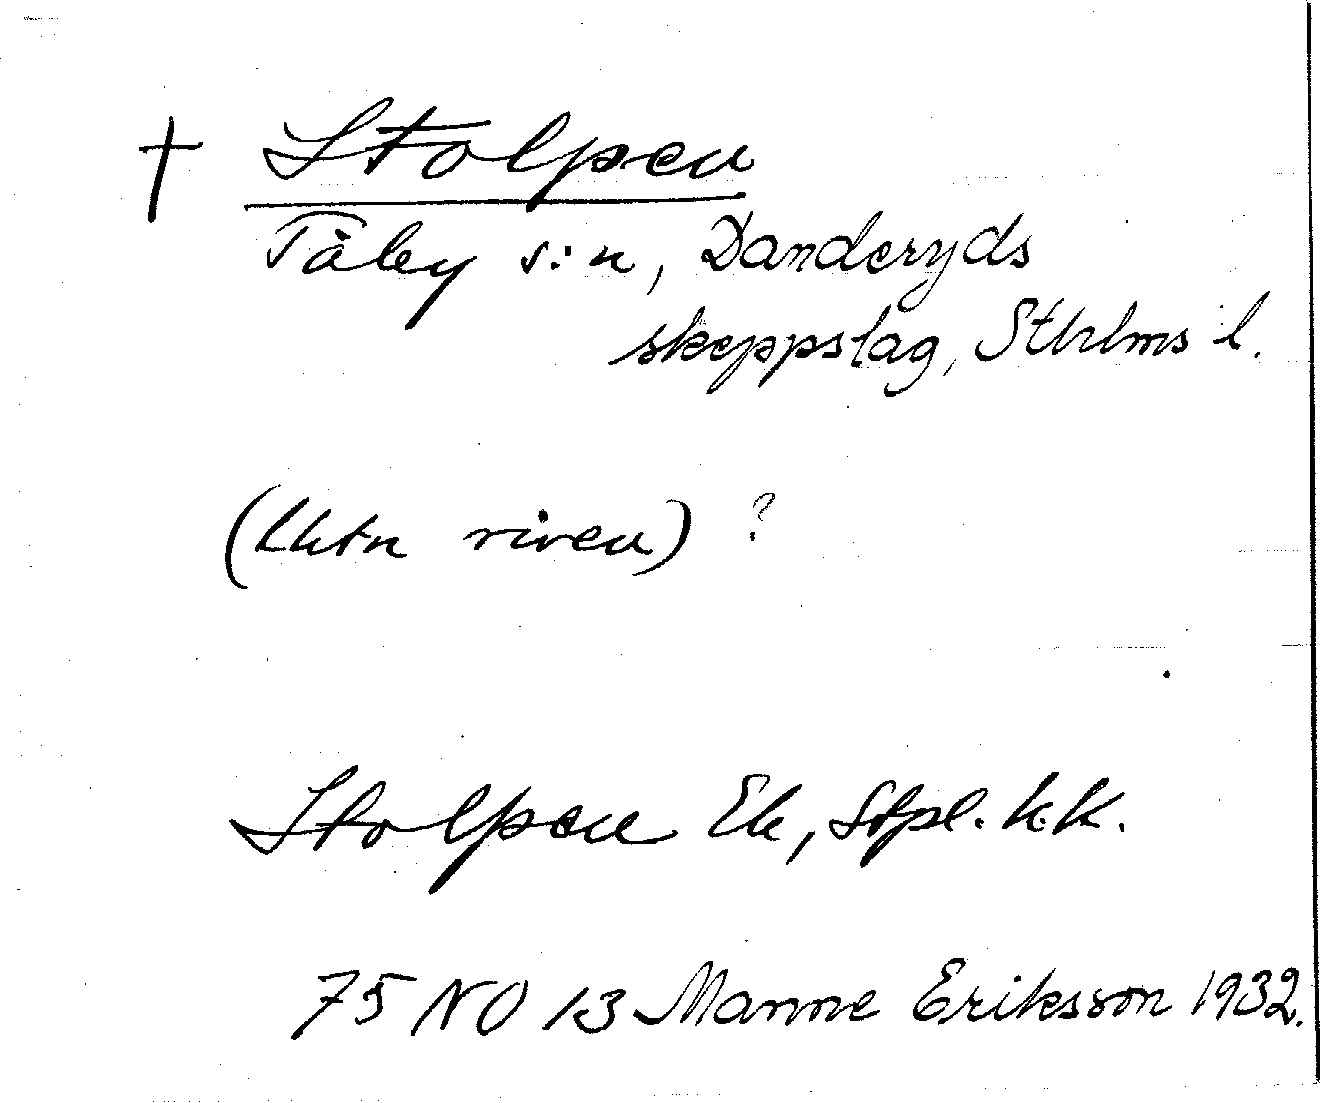 † Stolpen
Täby s:n, Danderyds
skeppslag, Sthlms l.
(lhtn riven) ?
Stolpen Ek, Stpl. k.k.
75 NO 13 Manne Eriksson 1932.